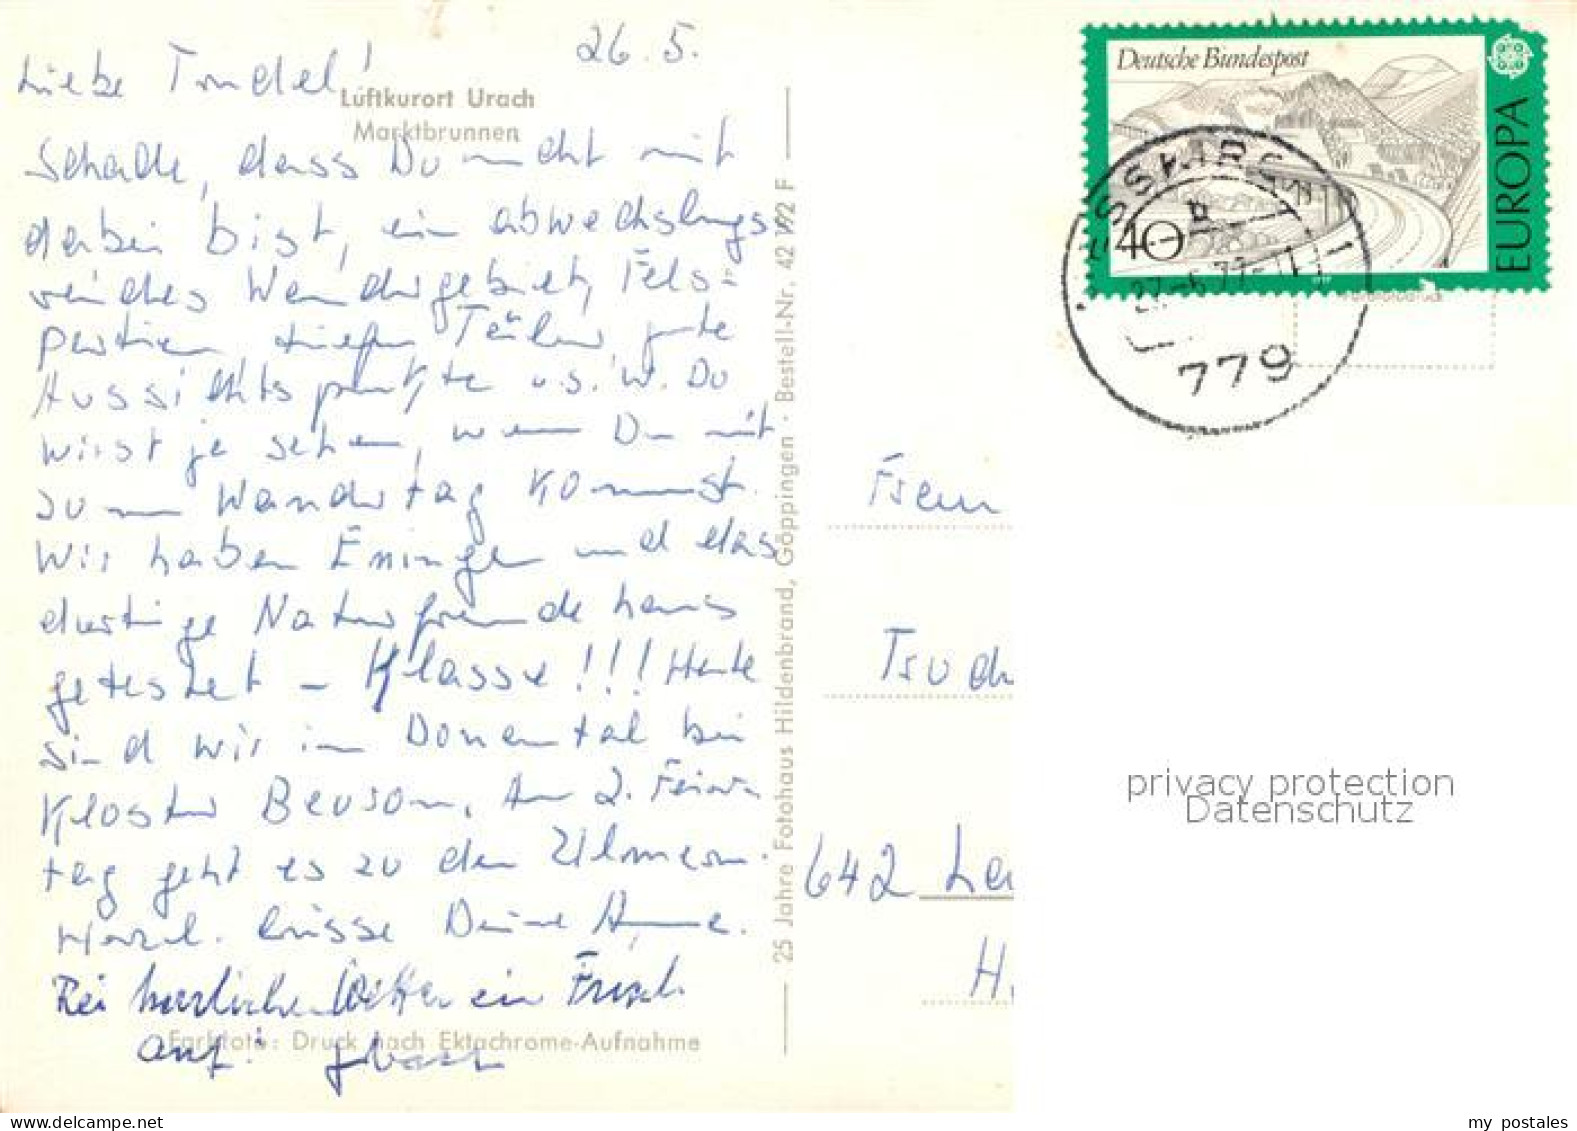 26. 5.
Liebe Trudel!
Luftkurort Urach
Marktbrunnen
Schade, dass Du nicht mit
dabei bist, ein abwechslungs
reiches Wandergebiet, Fels-
partien, tiefen Täler, gute
Aussichtspunkte u.s.w. Du
wirst ja sehen, wenn Du mit
zum Wandertag kommst.
Wir haben Eningen und das
dortige Naturfreundehaus
getestet - Klasse!!! Heute
sind wir im Donautal bei
Kloster Beuron. Am 2. Feier-
tag geht es zu den
Herzl. Grüsse Deine
Bei herrlichem Wetter ein Frisch
auf!
Farbfoto: Druck nach Ektachrome-Aufnahme
25 Jahre Fotohaus Hildenbrand, Göppingen · Bestell-Nr. 42 W2 F
Deutsche Bundespost
EUROPA
40
b
779
642
H.
privacy protection
Datenschutz
my postales